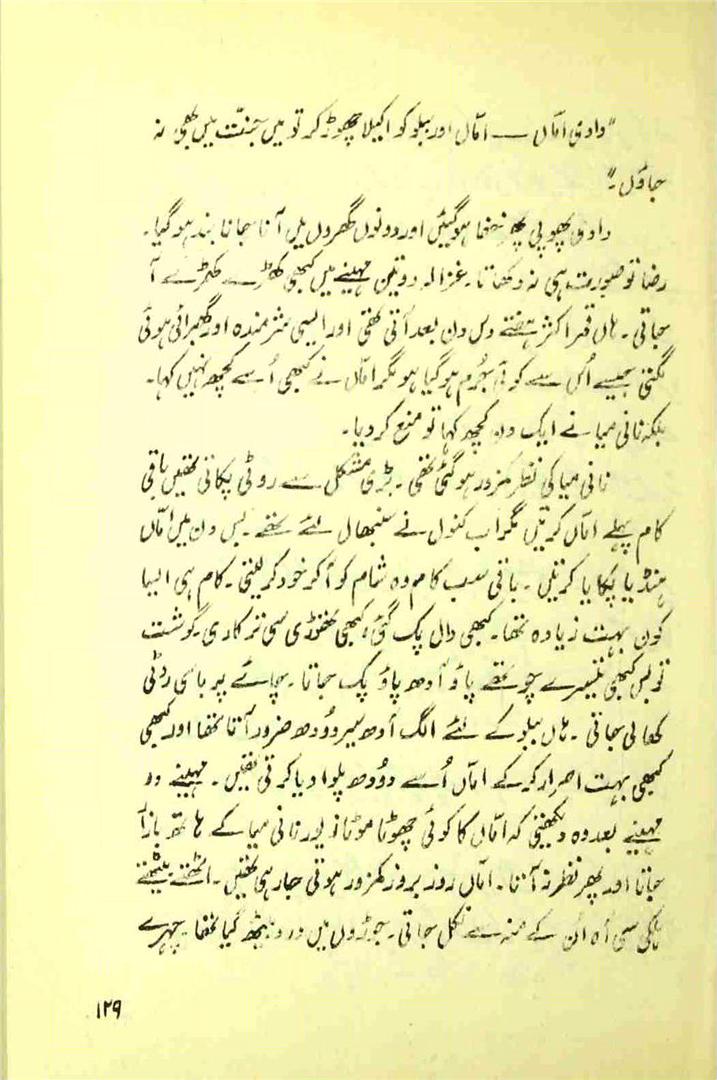 "دادی اماں ــــ اماں اور ببلو کو اکیلا چھوڑ کر تو میں جنت میں بھی نہ
جاؤں۔"
دادی پھوپی پھر خفا ہو گئیں اور دونوں گھروں میں آنا جانا بند ہو گیا۔
رضا تو صورت ہی نہ دکھاتا۔ غزالہ دو تین مہینے میں کبھی کھڑے کھڑے آ
جاتی۔ ہاں قمر اکثر ہفتے دس دن بعد آتی تھی اور ایسی شرمندہ اور گھبرائی ہوئی
لگتی جیسے اُس سے کوئی جُرم ہو گیا ہو مگر اماں نے کبھی اُسے کچھ نہیں کہا۔
بلکہ نانی میا نے ایک دن کچھ کہا تو منع کر دیا۔
نانی میا کی نظر کمزور ہو گئی تھی۔ بڑی مشکل سے روٹی پکاتی تھیں باقی
کام پہلے اماں کرتیں مگر اب کنول نے سنبھال لئے تھے۔ بس دن میں اماں
ہنڈیا پکایا کرتیں۔ باقی سب کام وہ شام کو آ کر خود کر لیتی۔ کام ہی ایسا
کون بہت زیادہ تھا۔ کبھی دال پک گئی، کبھی تھوڑی سی ترکاری۔ گوشت
تو بس کبھی تیسرے چوتھے پاؤ آدھ پاؤ پک جاتا۔ چائے پر باسی روٹی
کھا لی جاتی۔ ہاں ببلو کے لئے الگ آدھ سیر دودھ ضرور آتا تھا اور کبھی
کبھی بہت اصرار کر کے اماں اُسے دوُدھ پلوا دیا کرتی تھیں۔ مہینے دو
مہینے بعد وہ دیکھتی کہ اماں کا کوئی چھوٹا موٹا زیور نانی میا کے ہاتھ بازار
جاتا اور پھر نظر نہ آتا۔ اماں روز بروز کمزور ہوتی جا رہی تھیں۔ اٹھتے بیٹھتے
ہلکی سی آہ اُن کے منہ سے نکل جاتی۔ جوڑوں میں درد بیٹھ گیا تھا۔ چہرے
۱۲۹